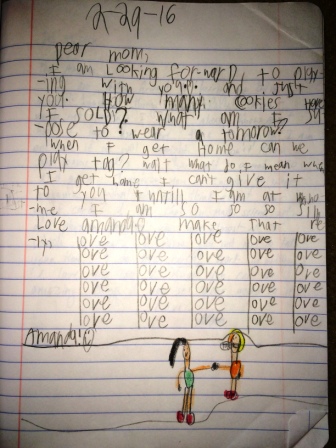 2-29-16
Dear mom,
I am looking for-warD to play
-ing with you!! and just
you. How many cookies Have
I SOLD? What am I SU
-pose to wear tomorow?
when I get home can we
play tag? wait what do I mean whe
I get home I can't give it
to you Intill I am at
-me I am so so so silly
Love amanda make That re
-lys
ove ove ove ove ove
ove ove ove ove ove
ove ove ove ove ove
ove ove ove ove ove
ove ove ove ove ove
ove ove ove ove ove
Amanda!